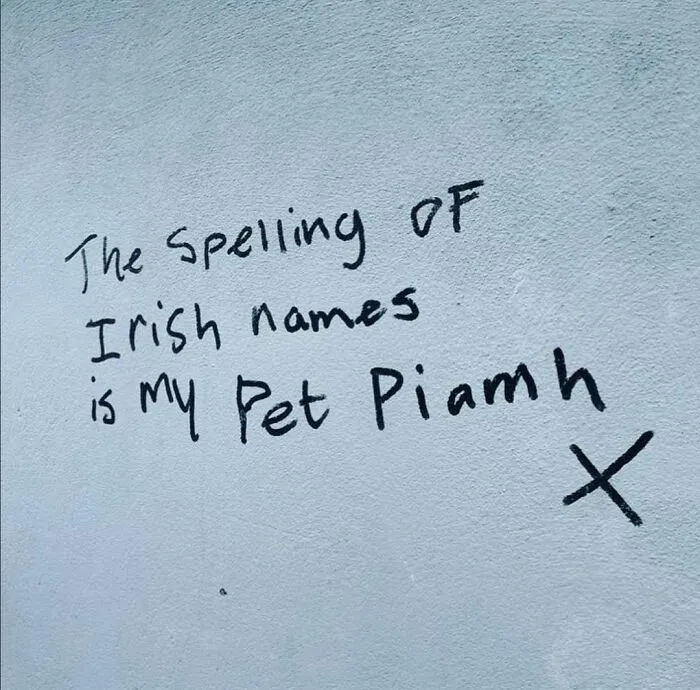 The Spelling OF
Irish names
is My Pet Piamh
X